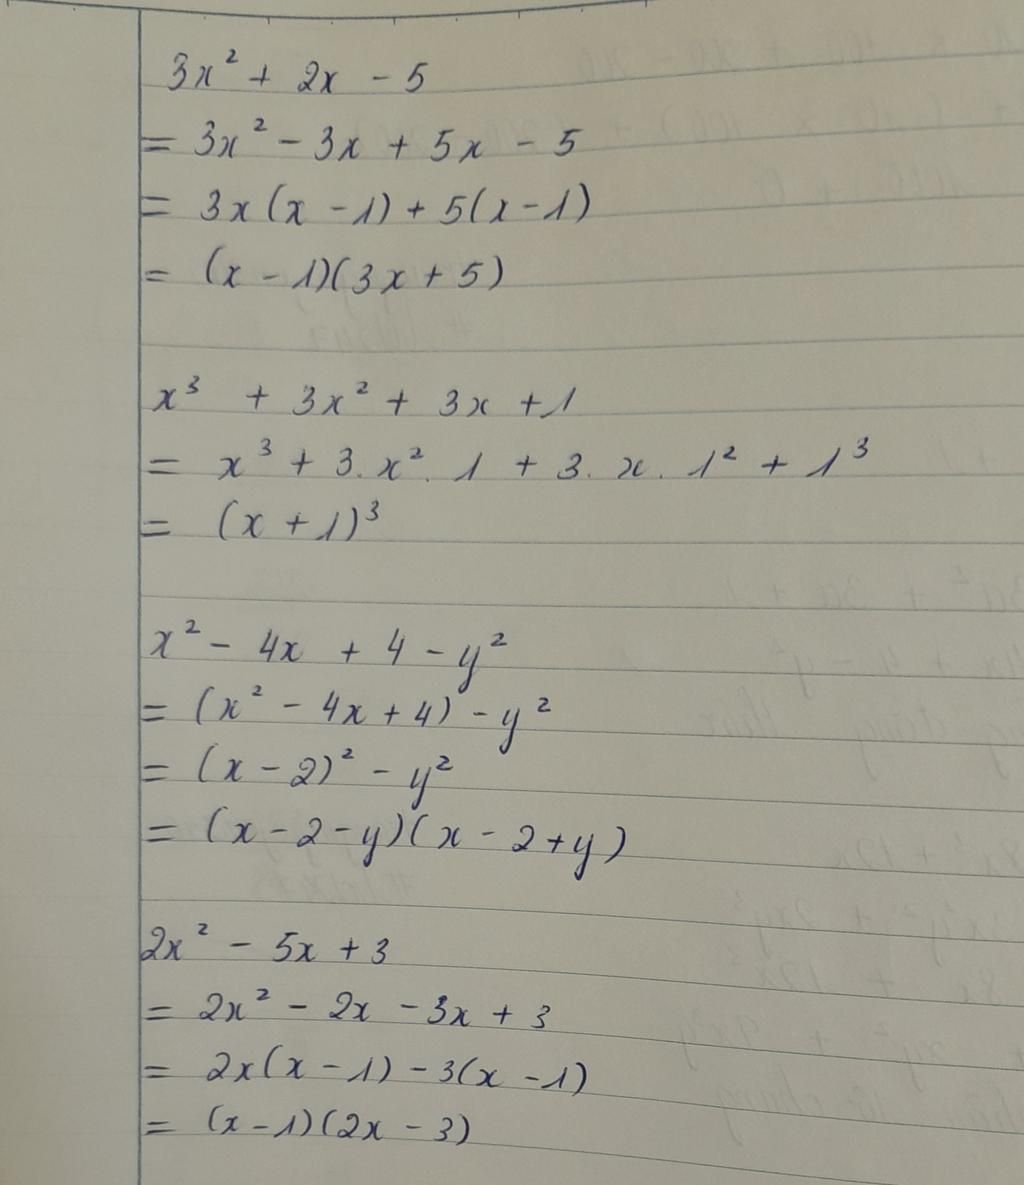 3x² + 2x - 5
= 3x² - 3x + 5x - 5
= 3x(x - 1) + 5(x - 1)
= (x - 1)(3x + 5)
x³ + 3x² + 3x + 1
= x³ + 3. x². 1 + 3. x. 1² + 1³
= (x + 1)³
x² - 4x + 4 - y²
= (x² - 4x + 4) - y²
= (x - 2)² - y²
= (x - 2 - y)(x - 2 + y)
2x² - 5x + 3
= 2x² - 2x - 3x + 3
= 2x(x - 1) - 3(x - 1)
= (x - 1)(2x - 3)